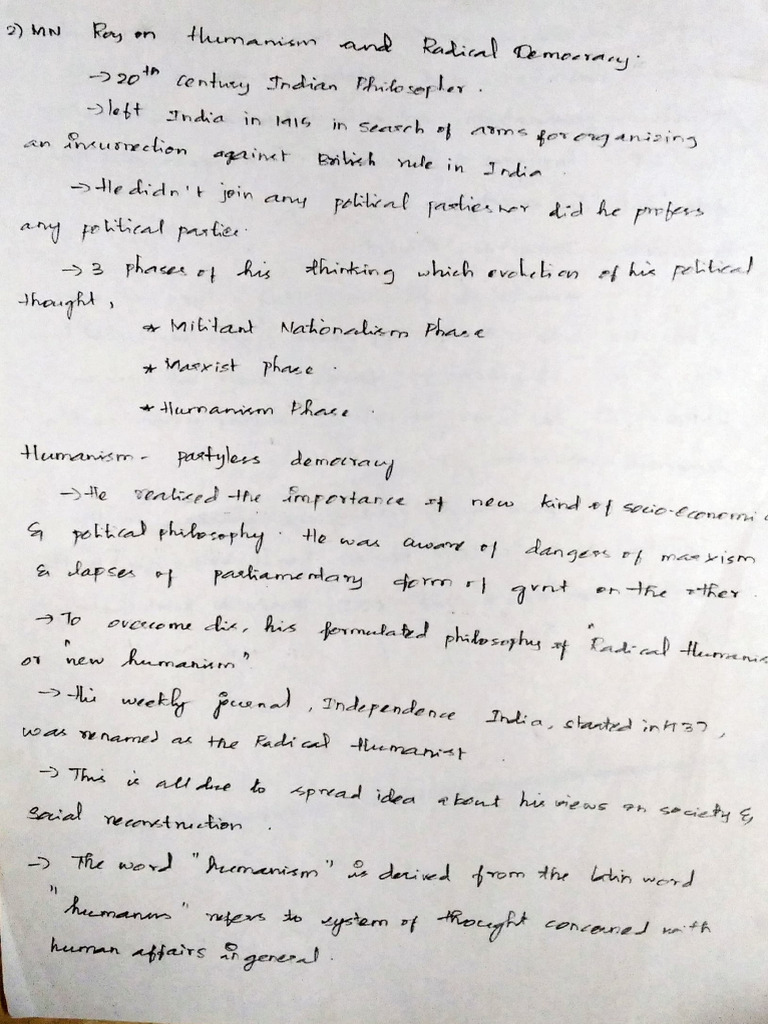 2) MN Roy on Humanism and Radical Democracy.
→ 20th century Indian Philosopher.
→ left India in 1915 in search of arms for organizing
an insurrection against British rule in India.
→ He didn't join any political parties nor did he profess
any political parties.
→ 3 phases of his thinking which evolution of his political
thought,
* Militant Nationalism Phase
* Marxist phase.
* Humanism Phase.
Humanism - partyless democracy
→ He realised the importance of new kind of socio-economi
& political philosophy. He was aware of dangers of marxism
& lapses of parliamentary form of gvnt on the other.
→ To overcome dis, his formulated philosophy of "Radical Humanis
or "new humanism"
→ His weekly journal, Independence India, started in 1937,
was renamed as the Radical Humanist.
→ This is all due to spread idea about his views on society &
social reconstruction.
→ The word "humanism" is derived from the latin word
"humanus" refers to system of thought concerned with
human affairs in general.